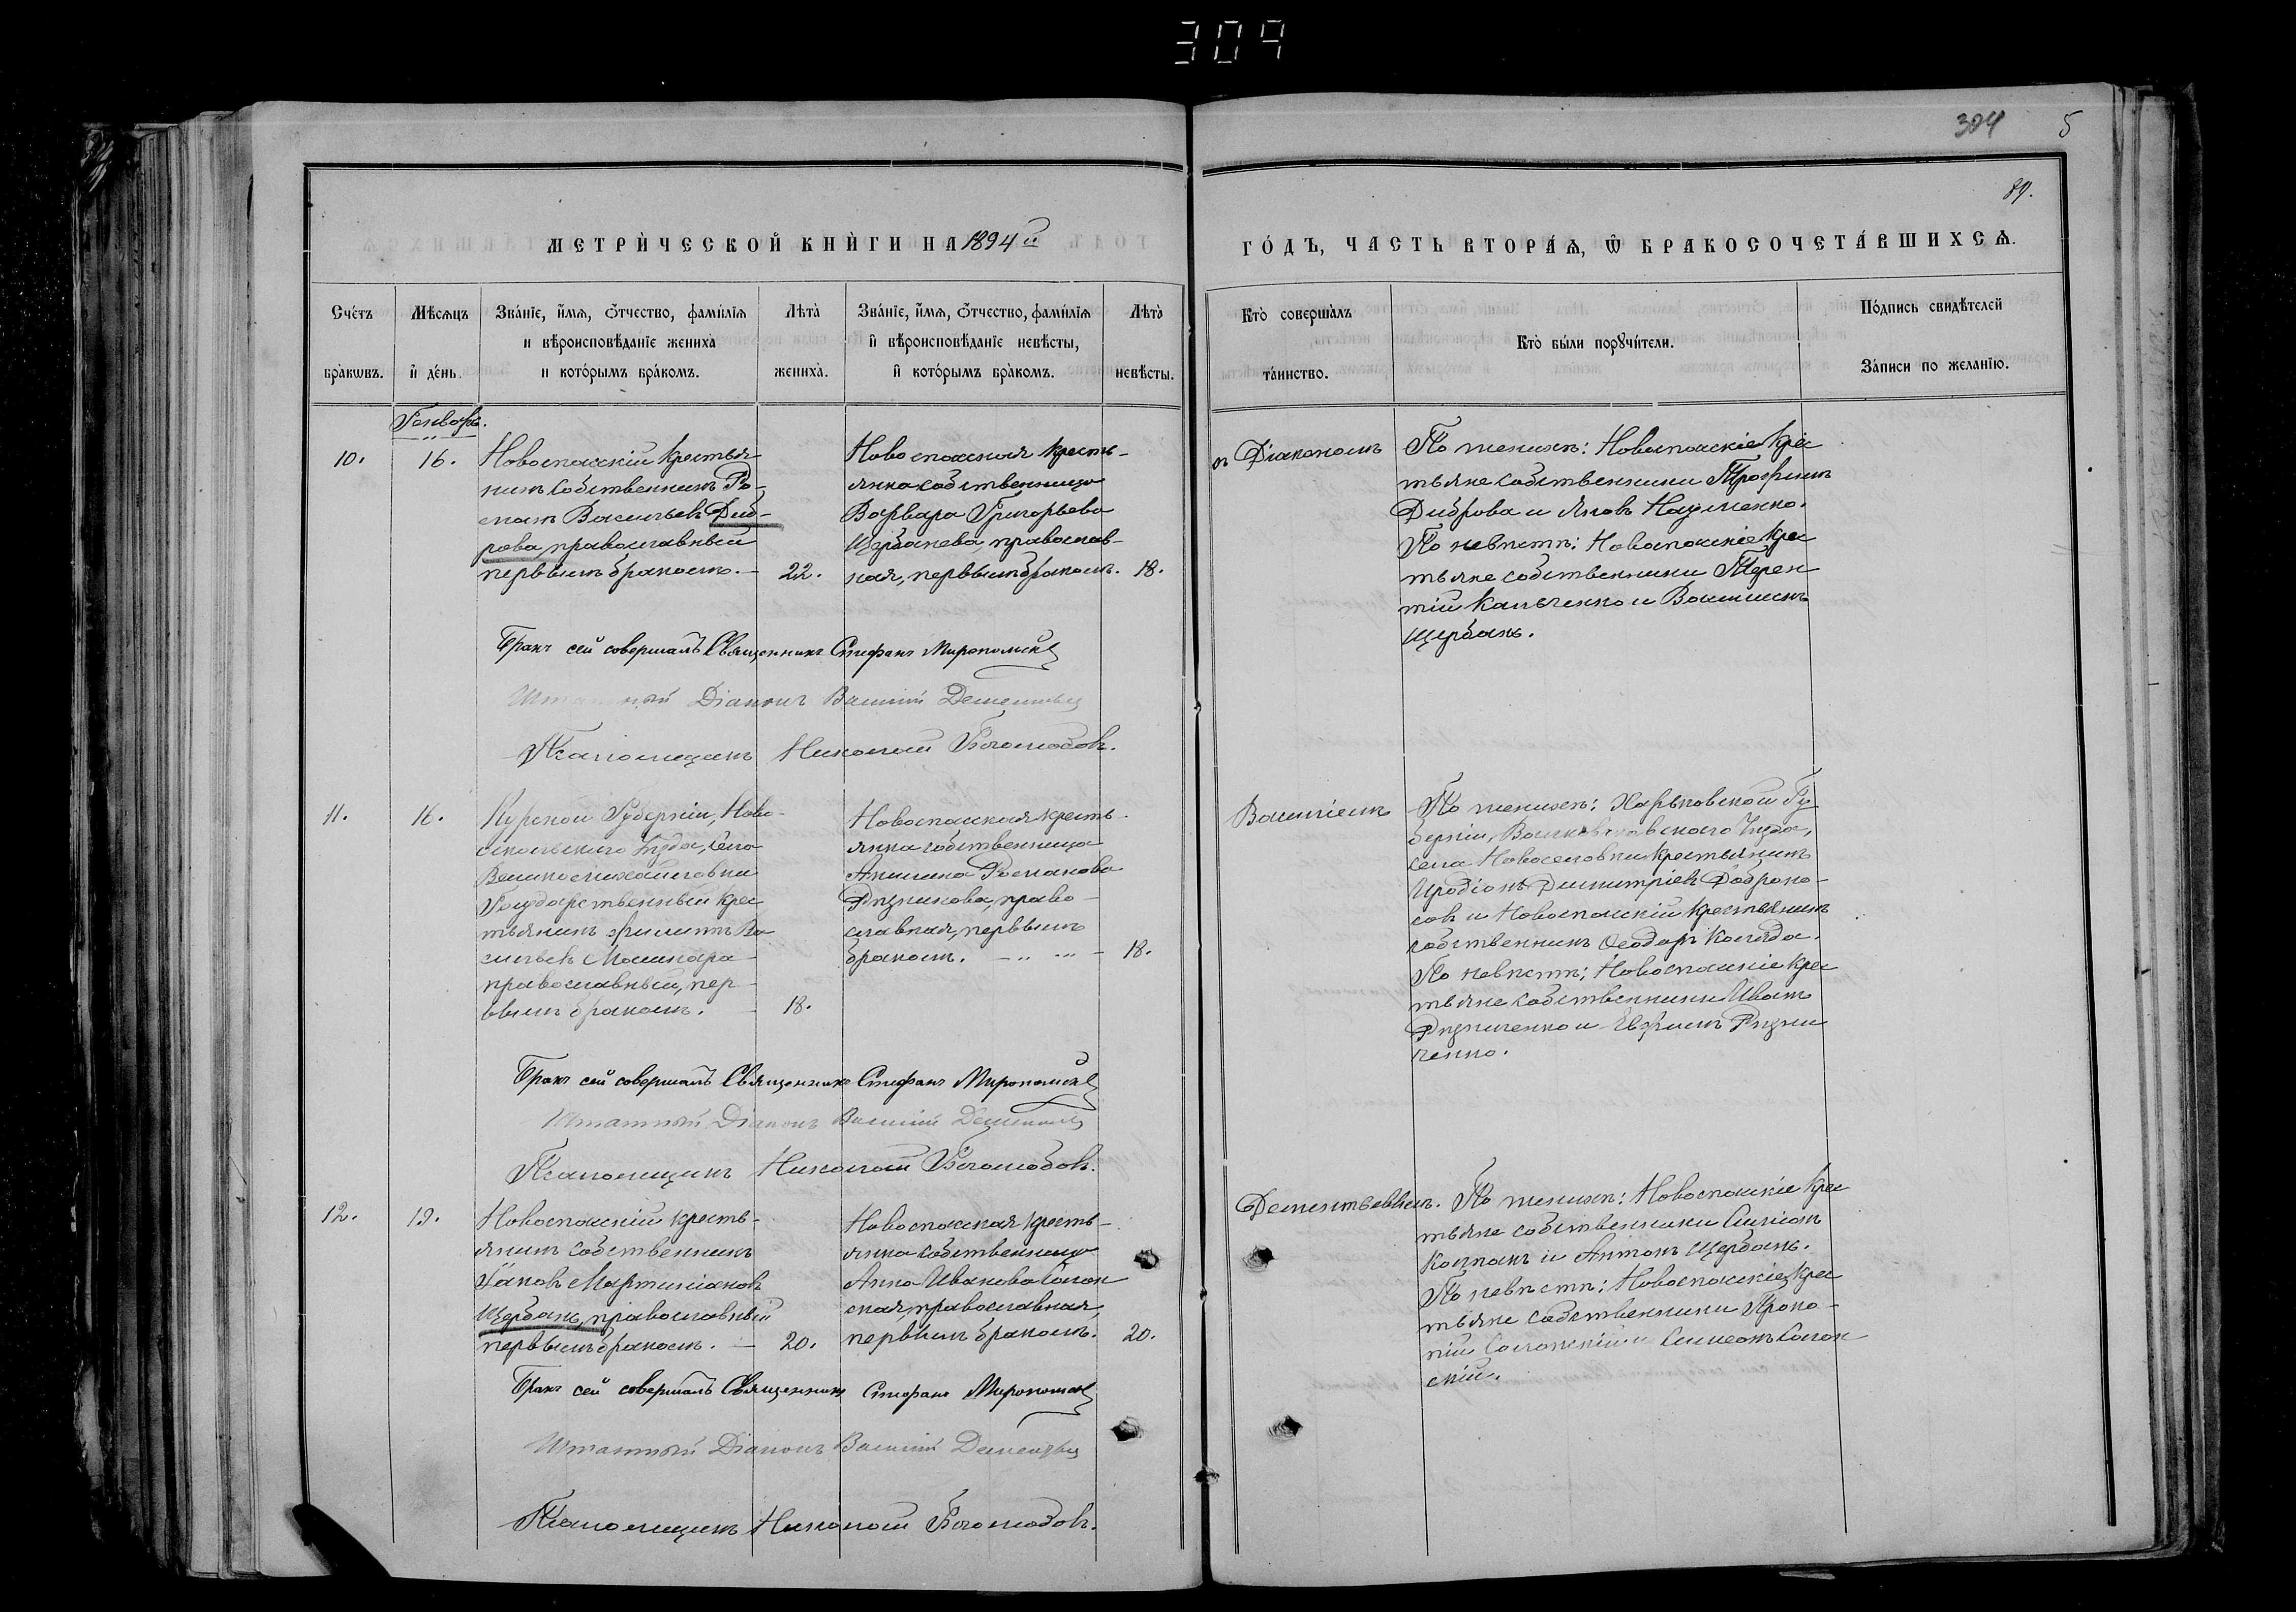 309
304 5
89.
МЕТРИ́ЧЕСКОЙ КНИ́ГИ НА 1894 й
ГО́ДЪ, ЧАСТЬ ВТОРА́Ѧ, Ѿ БРАКОСОЧЕТА́ВШИХСѦ.
Сче́тъ бра́кѡвъ.
Мѣ́сѧцъ и де́нь.
Зва́нїе, и́мѧ, ѻ҆́тчество, фами́лїѧ
и вѣроисповѣ́данїе жениха̀
и кото́рымъ бра́комъ.
Лѣ́та жениха̀.
Зва́нїе, и́мѧ, ѻ҆́тчество, фами́лїѧ
и вѣроисповѣ́данїе невѣ́сты,
и кото́рымъ бра́комъ.
Лѣ́та невѣ́сты.
Кто̀ соверша́лъ та́инство.
Кто̀ бы́ли порꙋчи́тели.
По́дпись свидѣ́телей
За́писи по жела́нїю.
Генварь.
10. 16.
Новоспасскій крестья
нинъ собственникъ Ро-
манъ Васильевъ Диб-
рова, православный
первымъ бракомъ. — 22.
Новоспасская кресть-
янка собственница
Варвара Григорьева
Щербанева, православ-
ная, первымъ бракомъ. 18.
Діакономъ
По женихѣ: Новоспасскіе кре
тьяне собственники Трофимъ
Диброва и Яковъ Науменко.
По невѣстѣ: Новоспасскіе кре
тьяне собственники Терен
тій Кальченко и Василій
Щербань.
Бракъ сей совершалъ Священникъ Стефанъ Миропольскій
Штатный Діаконъ Василій Дементьевъ
Псаломщикъ Николай Богомолов.
11. 16.
Курской Губерніи, Ново-
оскольскаго Уѣзда, Села
Великомихайловки
Государственный крес
тьянинъ Филиппъ Ва
сильевъ Мошкара
православный, пер-
вымъ бракомъ. — 18.
Новоспасская кресть-
янка собственница
Акилина Романова
Рѣзникова, право-
славная, первымъ
бракомъ. — 18.
Василіемъ
По женихѣ: Харьковской Гу
берніи, Уѣзда,
села Новоселовки крестьянинъ
Иродіонъ Димитріевъ Доброно-
сов и Новоспасскій крестьянинъ
собственникъ Ѳеодоръ Коляда.
По невѣстѣ: Новоспасскіе кре
тьяне собственники Иванъ
Рѣзниченко и Евфимъ Рѣзни
ченко.
Бракъ сей совершалъ Священникъ Стефанъ Миропольскій
Штатный Діаконъ Василій Дементьевъ
Псаломщикъ Николай Богомолов.
12. 19.
Новоспасскій кресть-
янинъ собственникъ
Іаковъ Мартиніановъ
Щербань, православный
первымъ бракомъ. — 20.
Новоспасская кресть-
янка собственница
Анна Иванова Солон
ская, православная,
первымъ бракомъ. 20.
Дементьевымъ.
По женихѣ: Новоспасскіе кре
тьяне собственники
Колпакъ и Антонъ Щербань.
По невѣстѣ: Новоспасскіе кре
тьяне собственники Проко-
пій Солонскій и Симеонъ Солон
скій.
Бракъ сей совершалъ Священникъ Стефанъ Миропольскій
Штатный Діаконъ Василій Дементьевъ
Псаломщикъ Николай Богомолов.